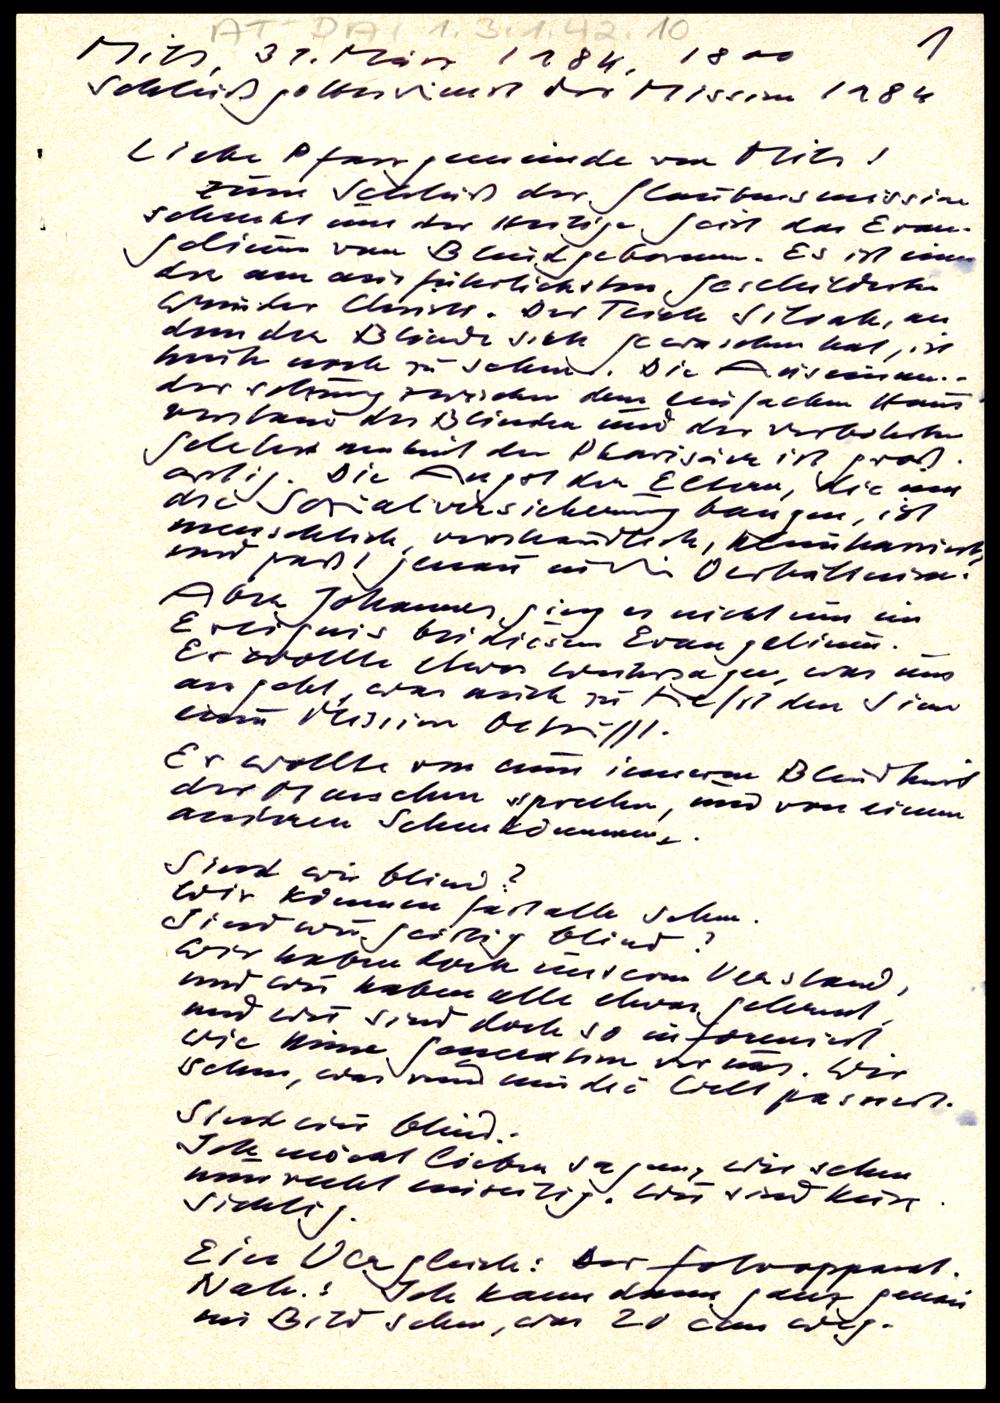 AT-DAI 1.3.1.42.10
1
Mils, 31. März 1984, 18 00
Schlußgottesdienst der Mission 1984
Liebe Pfarrgemeinde von Mils!
Zum Schluß der Glaubensmission
schenkt uns der Heilige Geist das Evan-
gelium vom Blindgeborenen. Es ist eines
der am ausführlichsten geschilderten
Wunder Christi. Der Teich Siloah, an
dem der Blinde sich gewaschen hat, ist
heute noch zu sehen. Die Auseinan-
dersetzung zwischen dem einfachen Haus
verstand des Blinden und der verbohrten
Gelehrsamkeit der Pharisäer ist groß-
artig. Die Angst der Eltern, die um
die Sozialversicherung bangen, ist
menschlich, verständlich, kleinkariert
und paßt genau in die Verhältnisse.
Aber Johannes ging es nicht um ein
Ereignis bei diesem Evangelium.
Er wollte etwas weitersagen, was uns
angeht, was auch zu tiefst den Sinn
einer Mission betrifft.
Er wollte von einer inneren Blindheit
der Menschen sprechen, und von einem
anderen Sehenkönnen.
Sind wir blind?
Wir können fast alle sehen.
Sind wir geistig blind?
Wir haben doch unseren Verstand,
und wir haben alle etwas gelernt,
und wir sind doch so informiert
wie keine Generation vor uns. Wir
sehen, was rund um die Welt passiert.
Sind wir blind.
Ich möcht lieber sagen, wir sehen
nur recht einseitig. Wir sind kurz
sichtig.
Ein Vergleich: Der Fotoapparat.
Nah.: Ich kann dann ganz genau
im Bild sehen, was 20 cm weg.